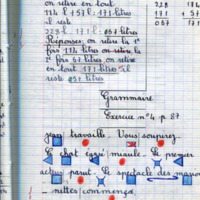 on retire en tout
114 l + 57 l : 171 litres
il reste
228 l 171 l : 057 litres
Réponses: on retire la 1e
fois 114 litres on retire la
2e fois 57 litres on retire
en tout 171 litres il
reste 057 litres
228 171
171 + 57
057 171
Grammaire
Exercice n°4 p 87
travaille. Vous soupirez.
Le chat égaré miaule. Le premier
acteur parut. Le spectacle des marion
nettes commença